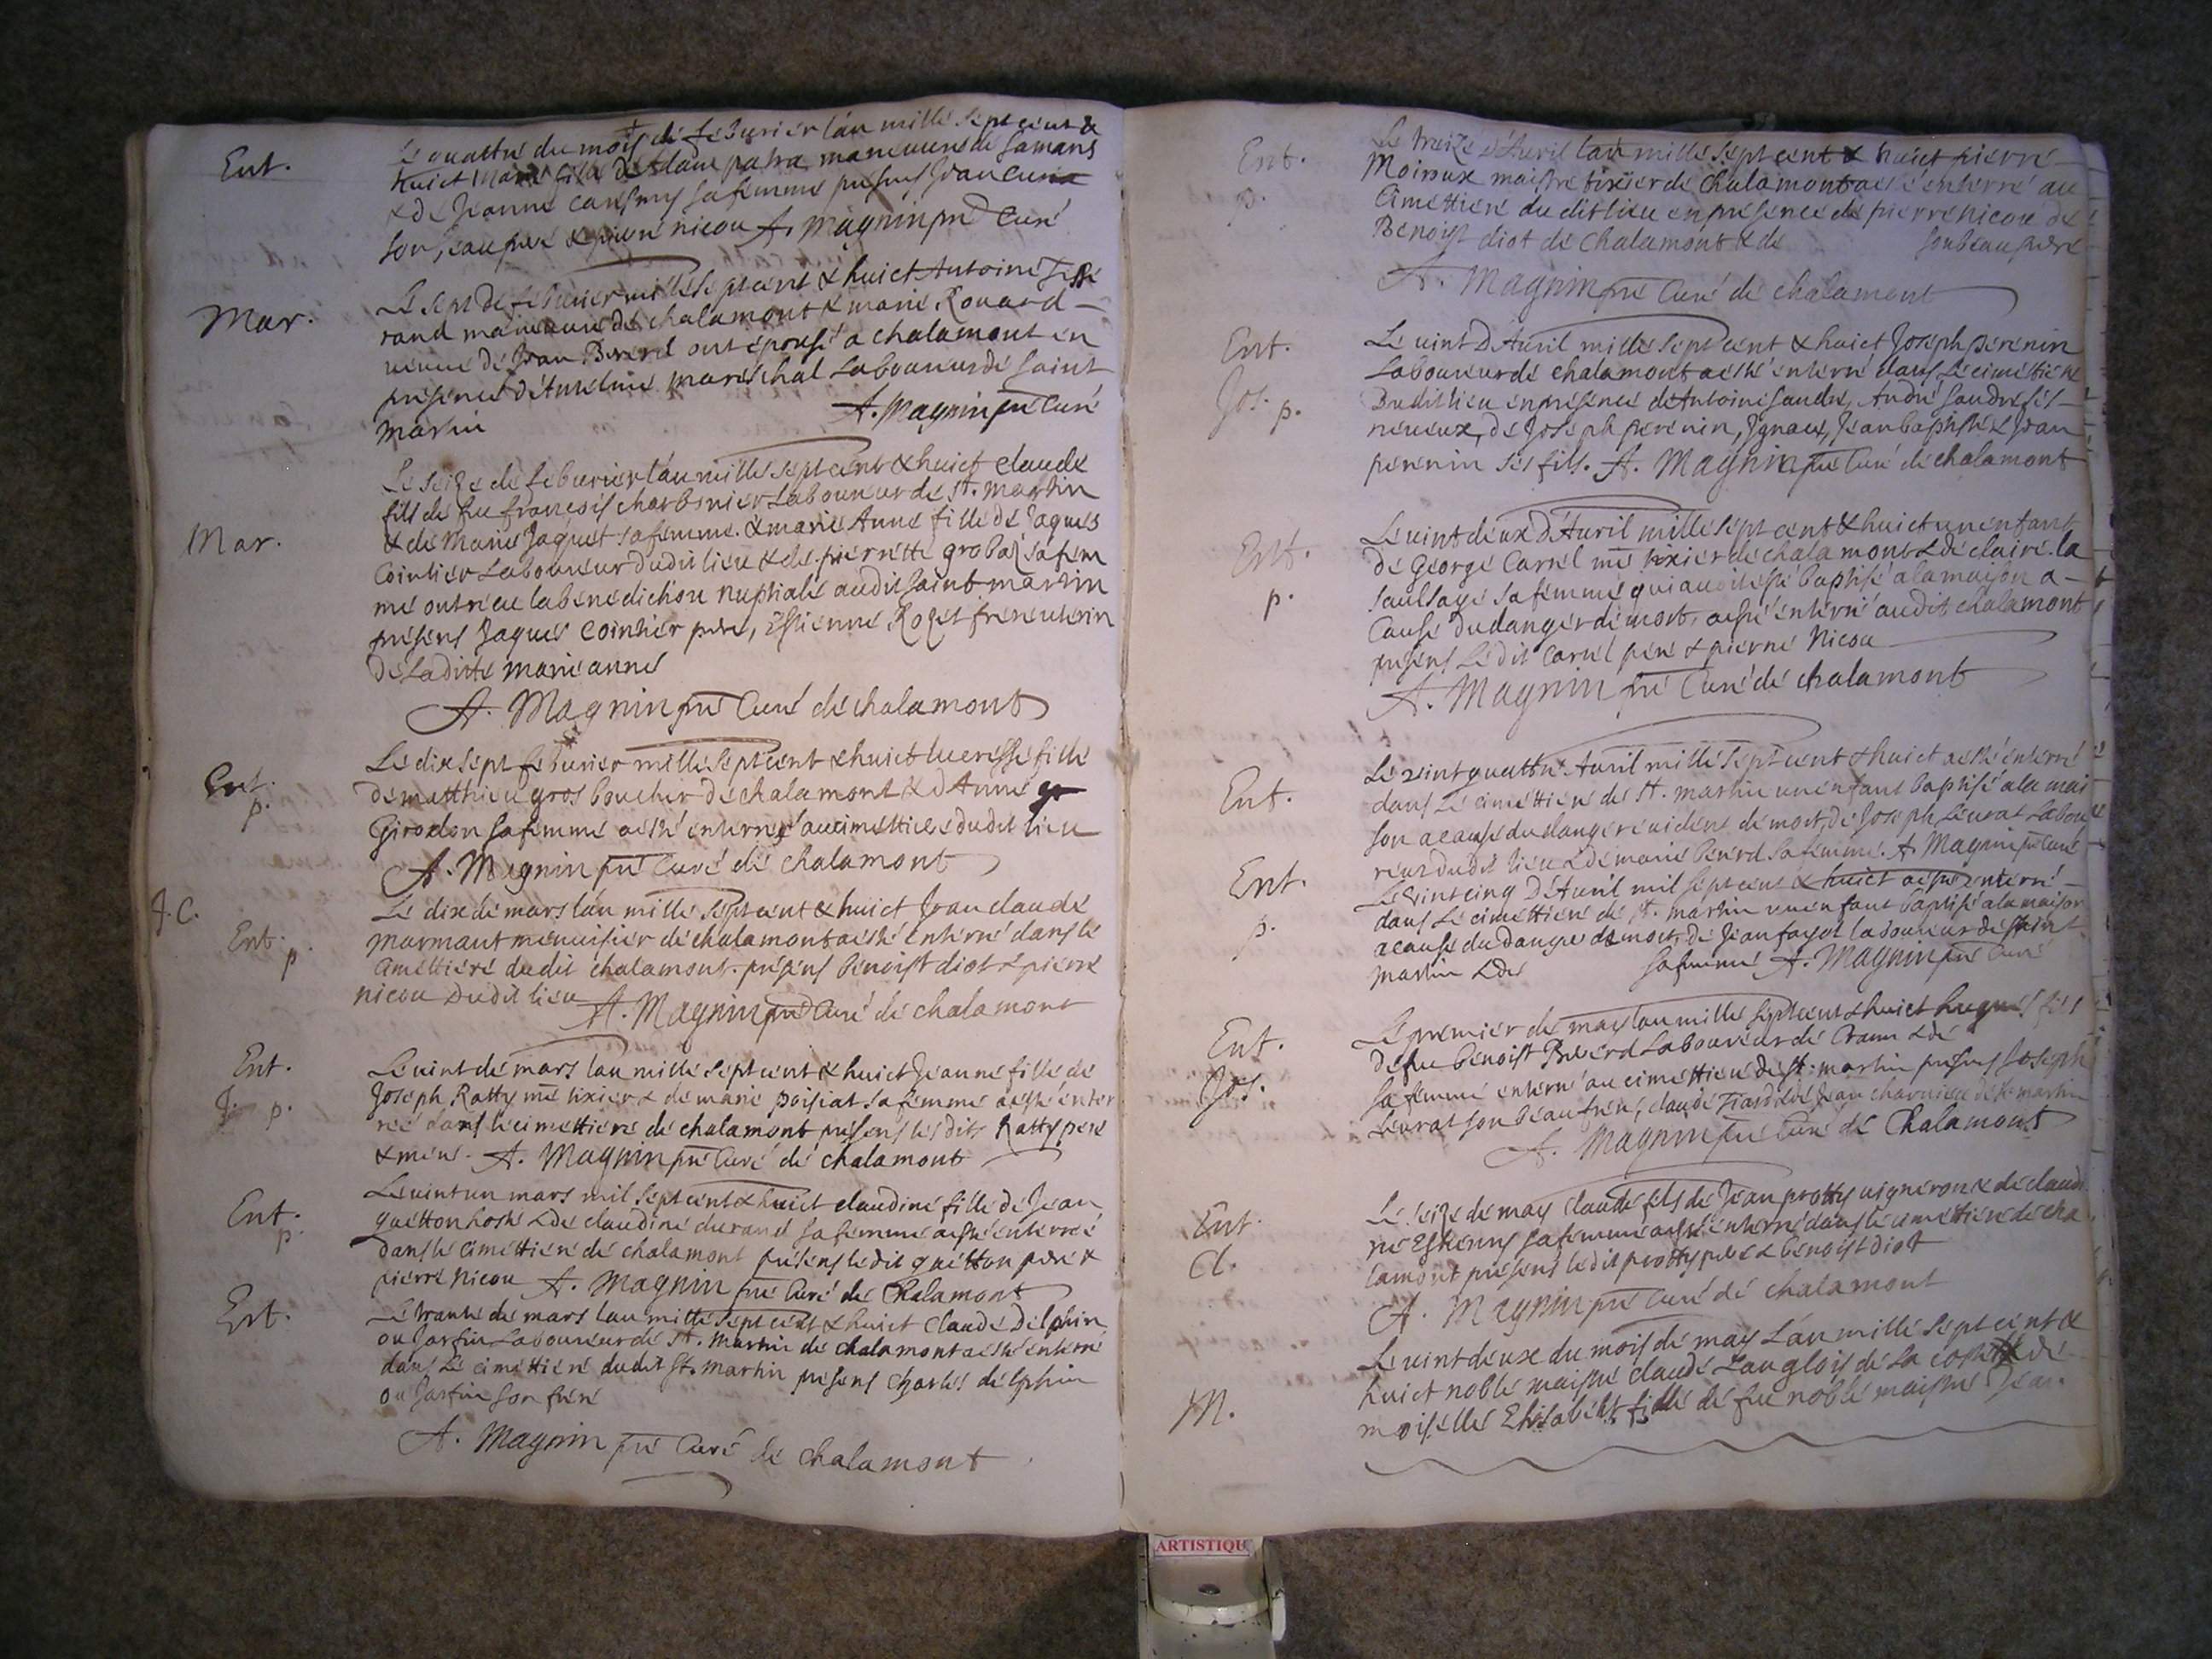 Ent.
Le quattre du mois de feburier l'an mille sept cent &
huict Marie fille de Adam patra maneuvre de Samans
& de Jeanne sa femme presens Jean
son beau pere & pierre nicou A. Magnin pre Curé
Mar.
Le sept de feburier mille sept cent & huict Antoine
rand maneuvre de chalamont & marie Rouard
veuve de Jean Bererd ont épousé a chalamont en
presence d'Anthelme mareschal Laboureur de saint
martin A. Magnin pre Curé
Mar.
Le seize de feburier l'an mille sept cent & huict claude
fils de feu françois charbonier Laboureur de St. martin
& de Marie Jaquet sa femme. & marie Anne fille de Jaques
Cointier Laboureur dudit lieu & de pierrette grobaz sa fem
me ont receu la benediction nuptiale audit saint martin
présens Jaques Cointier pere, Estienne Rozet frere uterin
de La ditte marie anne
A. Magnin pre Curé de chalamont
Ent.
p.
Le dix sept feburier mille sept cent & huict lucresse fille
de matthieu gros boucher de chalamont & d'Anne
Girodon sa femme a esté enterrée au cimettiere dudit lieu
A. Magnin pre Curé de chalamont
J. C.
Ent.
p.
Le dix de mars l'an mille sept cent & huict Jean claude
marmant menuisier de chalamont a esté enterré dans le
cimettiere dudit chalamont. présens benoist diot & pierre
nicou dudit lieu A. Magnin pre Curé de chalamont
Ent.
J. p.
Le vint de mars l'an mille sept cent & huict Jeanne fille de
Joseph Ratty me tixier & de marie poisiat sa femme a esté enter
rée dans le cimettiere de chalamont presens les dits Ratty pere
& mere. A. Magnin pre Curé de chalamont
Ent.
p.
Le vint un mars mil sept cent & huict claudine fille de Jean
guetton hoste & de claudine durand sa femme a esté enterrée
dans le cimettiere de chalamont présens ledit guetton pere &
pierre nicou A. Magnin pre Curé de Chalamont
Ent.
Le trante de mars l'an mille sept cent & huict Claude Delphin
ou Jarfin Laboureur de St. Martin de chalamont a esté enterré
dans le cimettiere dudit St. Martin présens Charles delphin
ou Jarfin son frere
A. Magnin pre Curé de chalamont
Ent.
p.
Le treize d'Avril l'an mille sept cent & huict pierre
Moiroux maistre tixier de Chalamont a esté enterré au
Cimettiere du dit lieu en presence de pierre nicou de
Benoist diot de Chalamont & de son beau pere
A. Magnin pre Curé de chalamont
Ent.
Jos. p.
Le vint d'Avril mille sept cent & huict Joseph perenin
Laboureur de chalamont a esté enterré dans le cimettiere
Dudit lieu en présence de Antoine saudre, André saudre ses
neveux, de Joseph perenin, Ignace, Jean baptiste & Jean
perenin ses fils. A. Magnin pre Curé de chalamont
Ent.
p.
Le vint deux d'Avril mille sept cent & huict un enfant
de George Carrel me tixier de chalamont & de claire la
saulsaye sa femme qui avoit esté baptisé a la maison a
cause du danger de mort, a esté enterré audit chalamont
presens Le dit Carrel pere & pierre Nicou
A. Magnin pre Curé de chalamont
Ent.
Le vint quattre Avril mille sept cent & huict a esté enterré
dans le cimettiere de St. martin un enfant baptisé a la mai
son a cause du danger évident de mort, de Joseph Leurat Labou
reur dudit lieu & de marie bererd sa femme. A. Magnin pre Curé
Ent.
p.
Le Vint cinq D'Avril mil sept cent & huict a esté enterré
dans Le cimettiere de St. martin un enfant baptisé a la maison
a cause du danger de mort, de Jean fayot laboureur de saint
martin & de sa femme A. Magnin pre Curé
Ent.
Jos.
Le premier de may l'an mille sept cent & huict hugues fils
de feu benoist Bererd Laboureur de Crann & de
sa femme enterré au cimettiere de St. martin presens Joseph
Leurat son beau frere, claude Jean charvieu de St. martin
A. Magnin pre Curé de Chalamont
Ent
Cl.
Le seize de may Claude fils de Jean protty vigneron & de claudi
ne Estienne sa femme a esté enterré dans le cimettiere de cha
lamont présens le dit protty pere & benoist diot
A. Magnin pre Curé de chalamont
M.
Le vint deux du mois de may L'an mille sept cent &
huict noble maistre claude Langlois de La de
moiselle Elisabeth fille de feu noble maistre Jean
ARTISTIQU